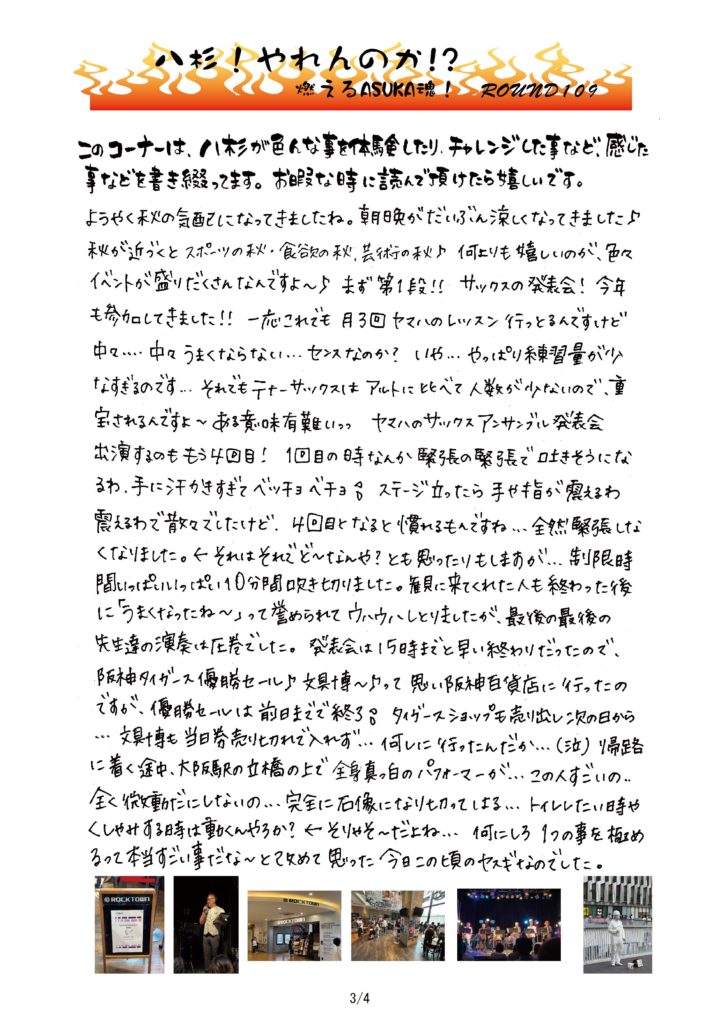 八杉！やれんのか!?
燃えるASUKA魂！ ROUND109
このコーナーは、八杉が色んな事を体験したり、チャレンジした事など、感じた
事などを書き綴ってます。お暇な時に読んで頂けたら嬉しいです。
ようやく秋の気配になってきましたね。朝晩がだいぶん涼しくなってきました♪
秋が近づくとスポーツの秋・食欲の秋、芸術の秋♪ 何よりも嬉しいのが、色々
イベントが盛りだくさんなんですよ～♪ まず第1段!! サックスの発表会！今年
も参加してきました!! 一応これでも月3回ヤマハのレッスン行っとるんですけど
中々…. 中々うまくならない… センスなのか？ いや… やっぱり練習量が少
なすぎるのです… それでもテナーサックスはアルトに比べて人数が少ないので、重
宝されるんですよ～ ある意味有難いっっ ヤマハのサックスアンサンブル発表会
出演するのももう4回目！ 1回目の時なんか緊張の緊張で吐きそうにな
るわ、手に汗かきすぎてベッチョベチョ。。 ステージ立ったら手や指が震えるわ
震えるわで散々でしたけど、4回目となると慣れるもんですね… 全然緊張しな
くなりました。←それはそれでど～なんや？とも思ったりもしますが… 制限時
間いっぱいいっぱい10分間吹き切りました。観に来てくれた人も終わった後
に「うまくなったね～」って誉められてウハウハしとりましたが、最後の最後の
先生達の演奏は圧巻でした。発表会は15時までと早い終わりだったので、
阪神タイガース優勝セール♪文具博～♪って思い阪神百貨店に行ったの
ですが、優勝セールは前日までで終了。。 タイガースショップも売り出し次の日から
… 文具博も当日券売り切れで入れず… 何しに行ったんだか…（泣）帰路
に着く途中、大阪駅の立橋の上で全身真っ白のパフォーマーが… この人すごいの..
全く微動だにしないの… 完全に石像になり切ってはる… トイレしたい時や
くしゃみする時は動くんやろか？←そりゃそ～だよね… 何にしろ1つの事を極め
るって本当すごい事だな～とて改めて思った今日この頃のヤスギなのでした。
ROCKTOWN
ROCKTOWN
3/4